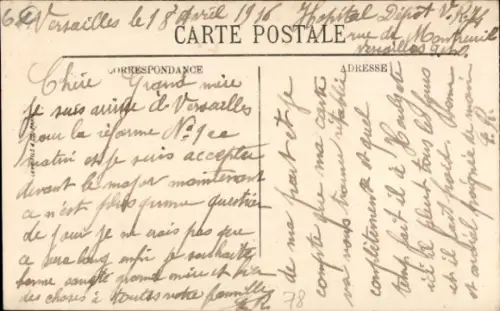 Versailles le 18 Avril 1916 Hopital Dépot V.R.
rue de Montreuil
Versailles
CARTE POSTALE
CORRESPONDANCE
ADRESSE
Chère Grand mère
Je suis arrivé à Versailles
pour la réforme No 1 ce
matin et je suis accepté
devant le major maintenant
ce n'est plus qu'une question
de jour je ne crois pas que
ce sera long enfin je souhaite
bonne santé grand mère et bien
des choses à toute notre famille
de ma part et je
compte que ma carte
va vous trouver rétablie
complètement et quel
temps fait il à
ici il pleut tous les jours
et il fait froid
et cordiale poignée de main
78